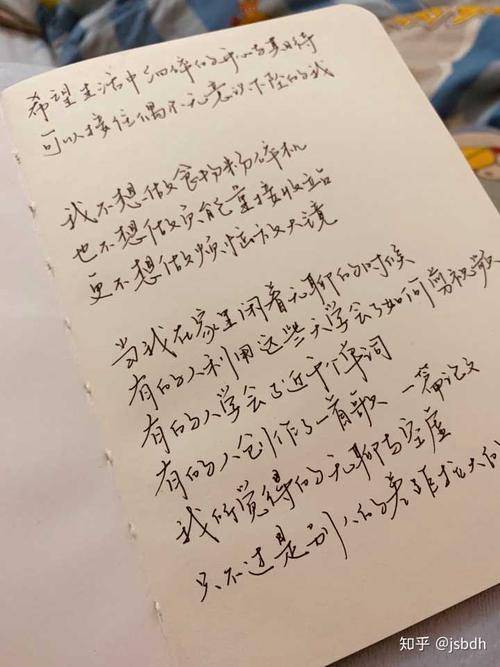 希望生活中细碎的开心与期待
可以接住偶尔无意识下坠的我
我不想做食物粉碎机
也不想做负能量接收站
更不想做烦恼放大镜
当我在家里闲着无聊的时候
有的人利用这些天学会了如何剪视频
有的人学会了近千个单词
有的人创作了一首歌 一篇论文
我所觉得的无聊与空虚
只不过是别人的差距拉大的
知乎 @jsbdh